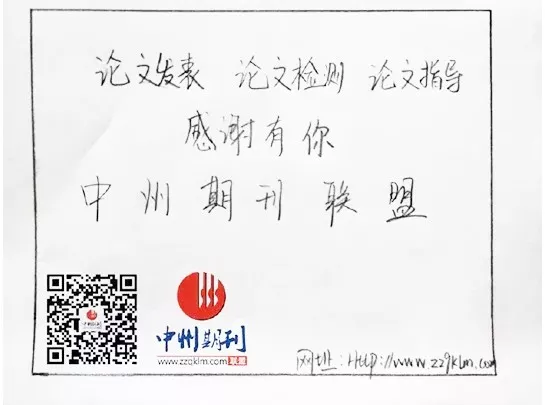 论文发表 论文检测 论文指导
感谢有你
中州期刊联盟
中州期刊
www.zzqklm.com 联盟
网址:Http://www.zzqklm.com